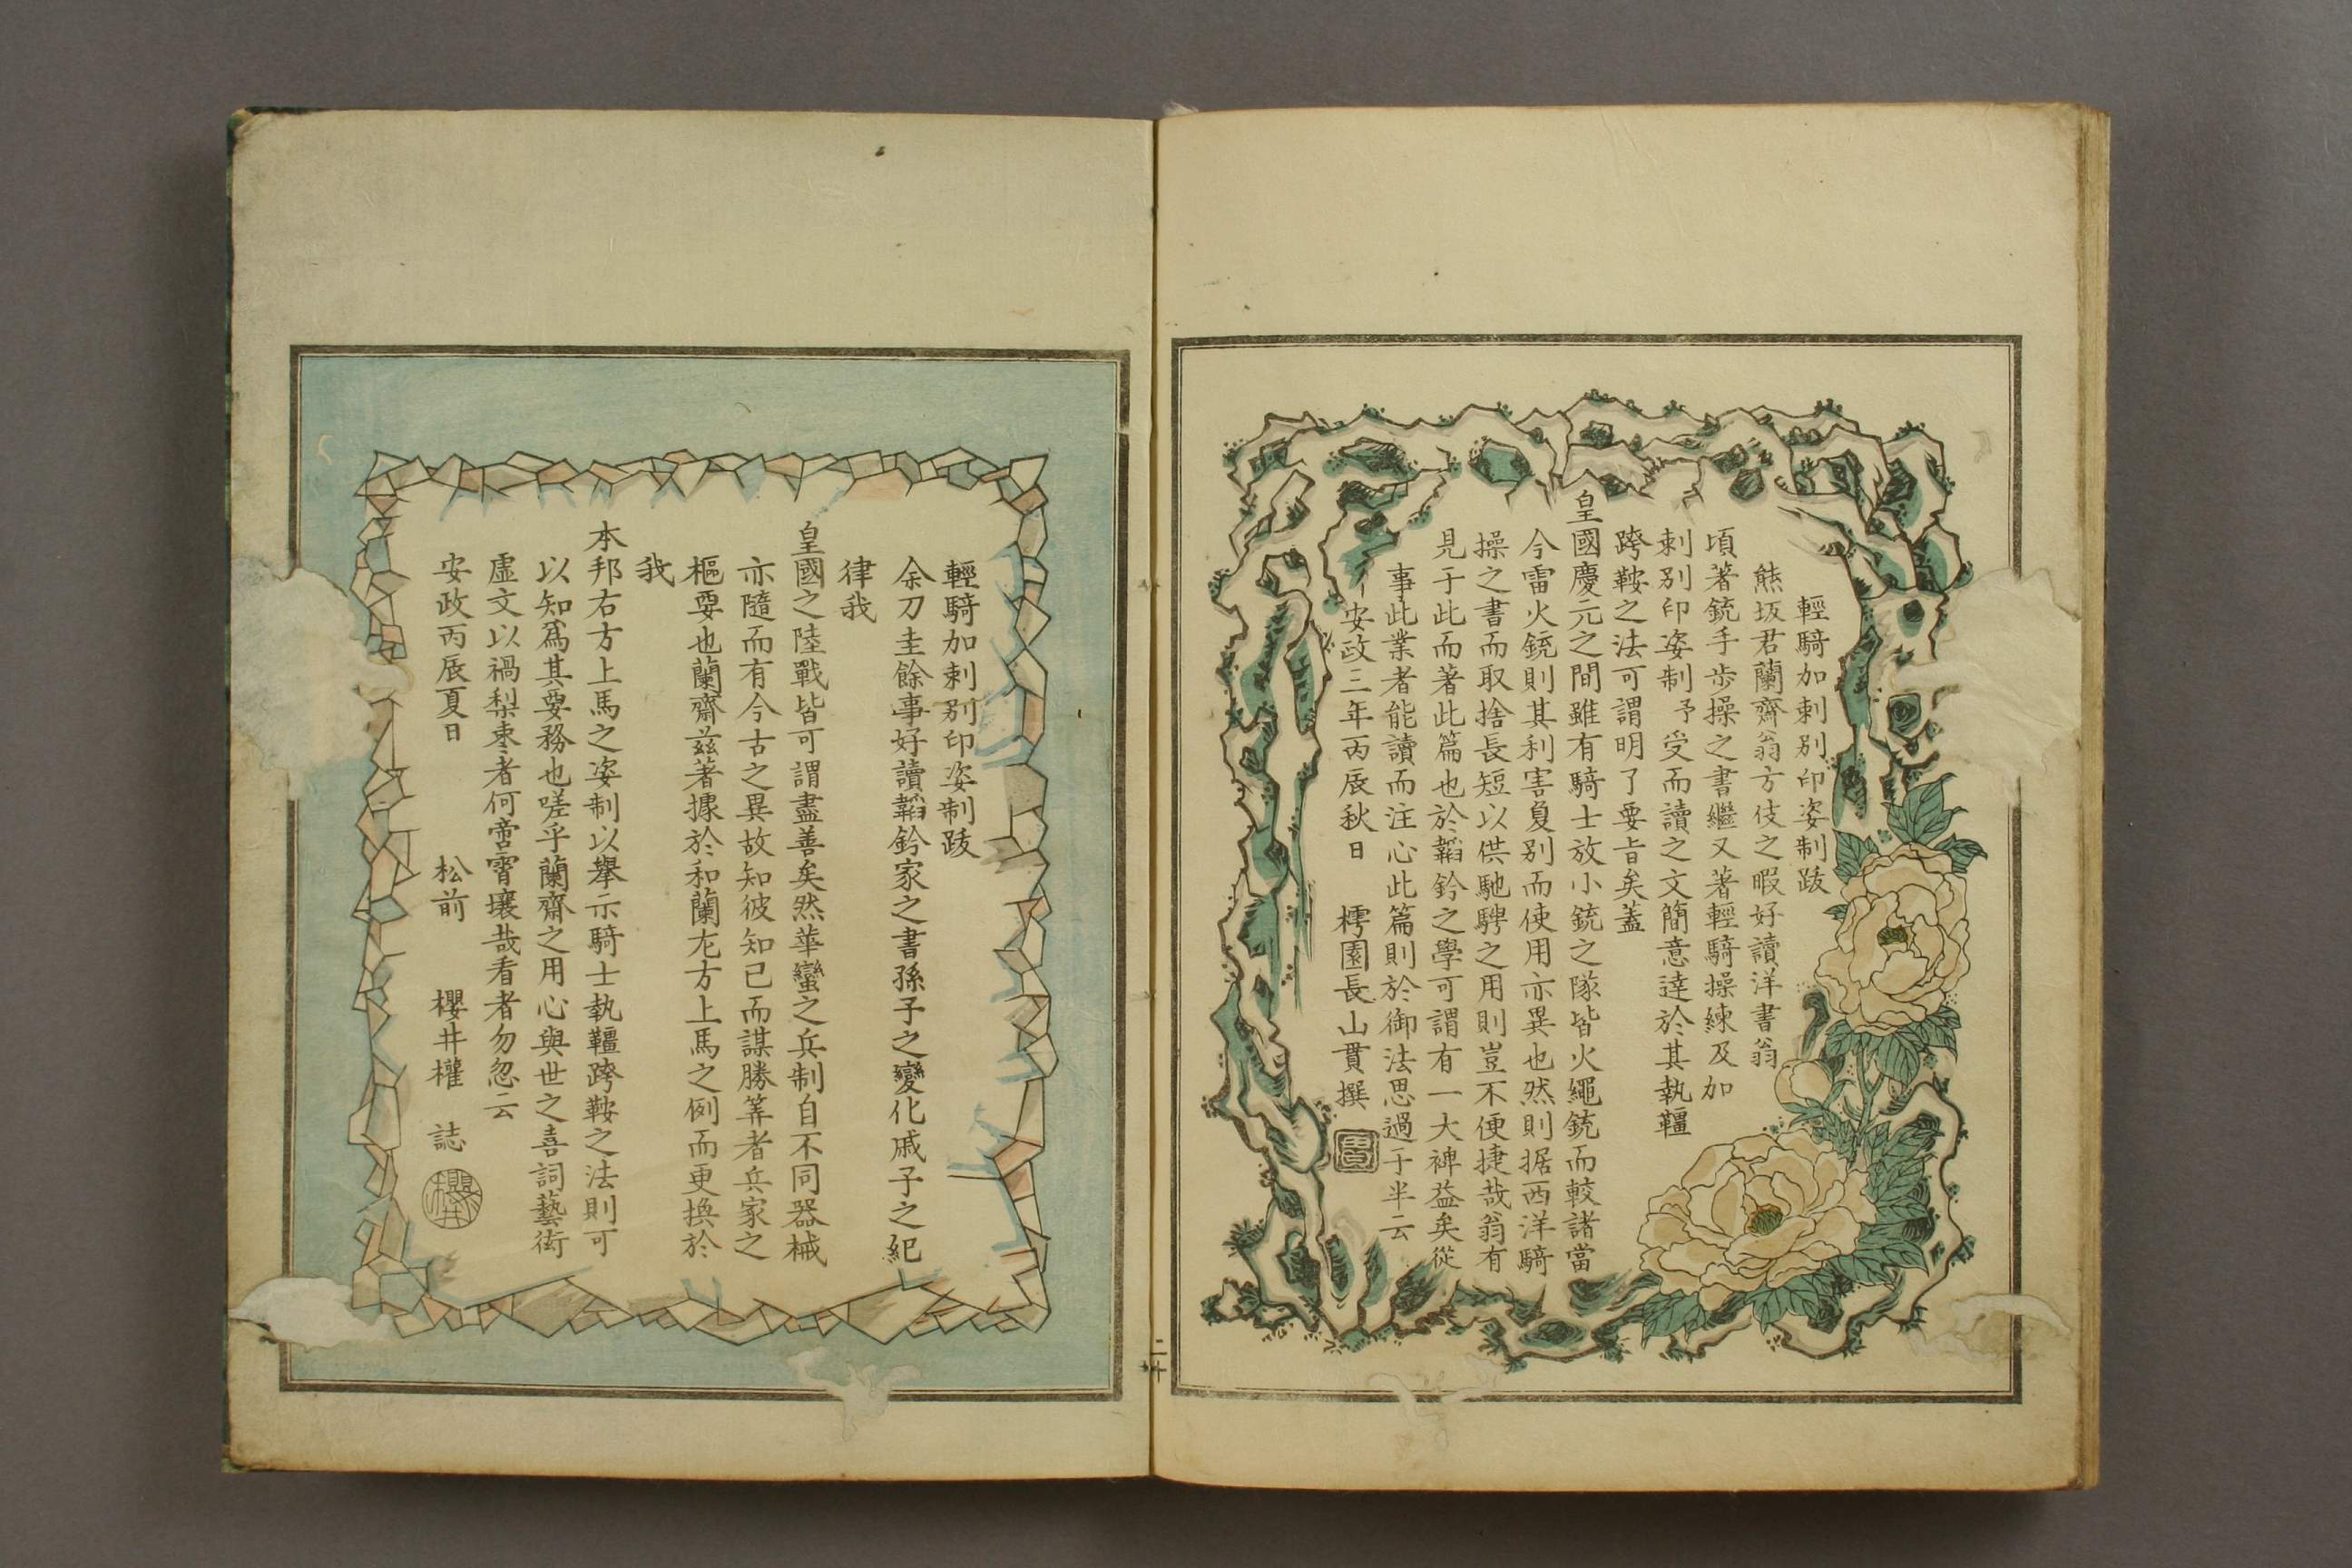 輕騎加刺別印姿制跋
熊坂君蘭齋翁方伎之暇好讀洋書翁
頃著銃手步操之書繼又著輕騎操練及加
刺別印姿制予受而讀之文簡意達於其執韁
跨鞍之法可謂明了要旨矣蓋
皇國慶元之間雖有騎士放小銃之隊皆火繩銃而較諸當
今雷火銃則其利害夐別而使用亦異也然則据西洋騎
操之書而取捨長短以供馳騁之用則豈不便捷哉翁有
見于此而著此篇也於韜鈐之學可謂有一大裨益矣從
事此業者能讀而注心此篇則於御法思過于半云
安政三年丙辰秋日 樗園長山貫撰
貫
二十
輕騎加刺別印姿制跋
余刀圭餘事好讀韜鈐家之書孫子之變化戚子之紀
律我
皇國之陸戰皆可謂盡善矣然華蠻之兵制自不同器械
亦隨而有今古之異故知彼知己而謀勝筭者兵家之
樞要也蘭齋茲著據於和蘭左方上馬之例而更換於
我
本邦右方上馬之姿制以擧示騎士執韁跨鞍之法則可
以知爲其要務也嗟乎蘭齋之用心與世之喜詞藝術
虛文以禍梨棗者何啻霄壤哉看者勿忽云
安政丙辰夏日 松前 櫻井權 誌
櫻井